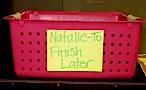 Natalie-To
Finish
Later